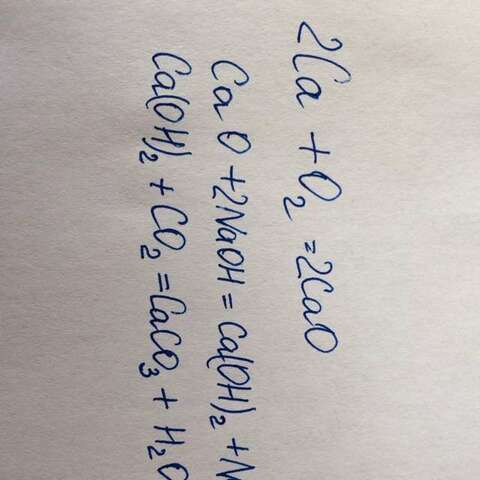 2Ca + O₂ = 2CaO
CaO + 2NaOH = Ca(OH)₂ +
Ca(OH)₂ + CO₂ = CaCO₃ + H₂O